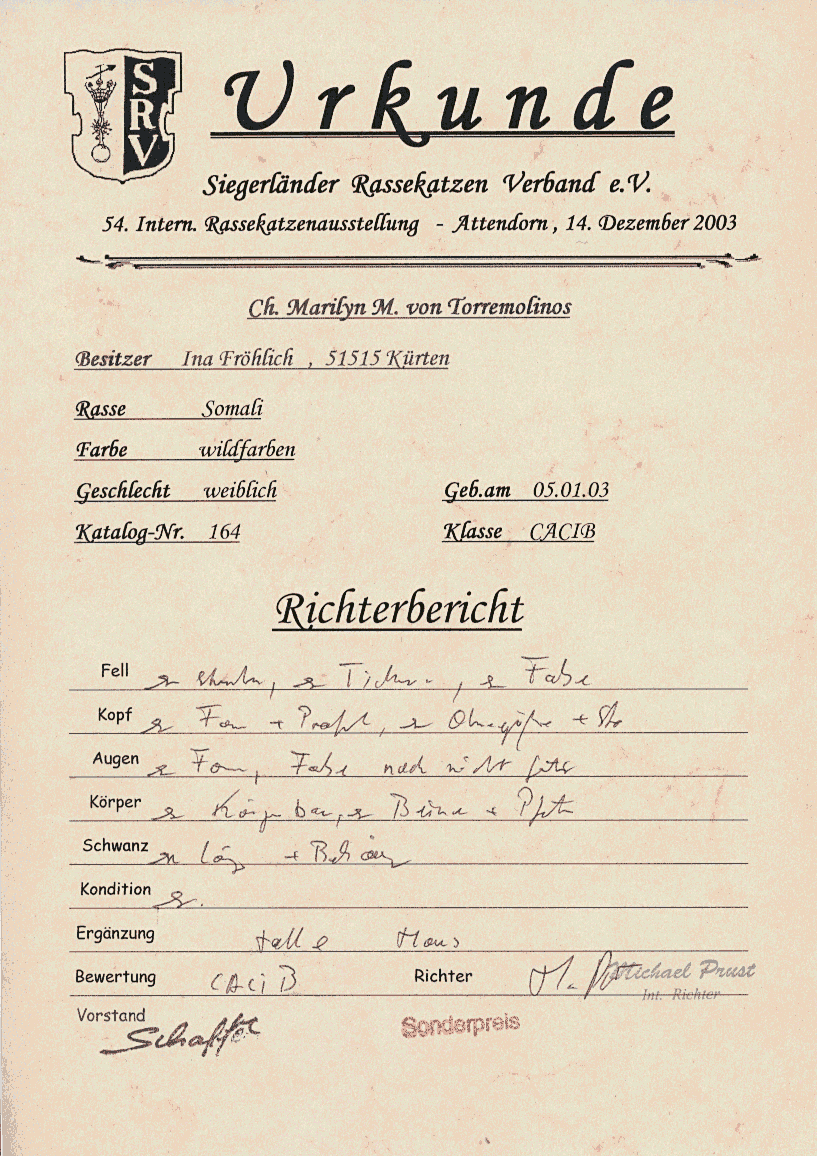 SRV
Urkunde
Siegerländer Rassekatzen Verband e.V.
54. Intern. Rassekatzenausstellung - Attendorn, 14. Dezember 2003
Ch. Marilyn M. von Torremolinos
Besitzer Ina Fröhlich , 51515 Kürten
Rasse Somali
Farbe wildfarben
Geschlecht weiblich Geb.am 05.01.03
Katalog-Nr. 164 Klasse CACIB
Richterbericht
Fell Farbe
Kopf Form + Profil,
Augen Form, Farbe noch nicht
Körper Körperbau, Beine + Pfoten
Schwanz Länge + Behaarung
Kondition
Ergänzung tolle Maus
Bewertung CACIB Richter Michael Prust
Int. Richter
Vorstand
Sonderpreis